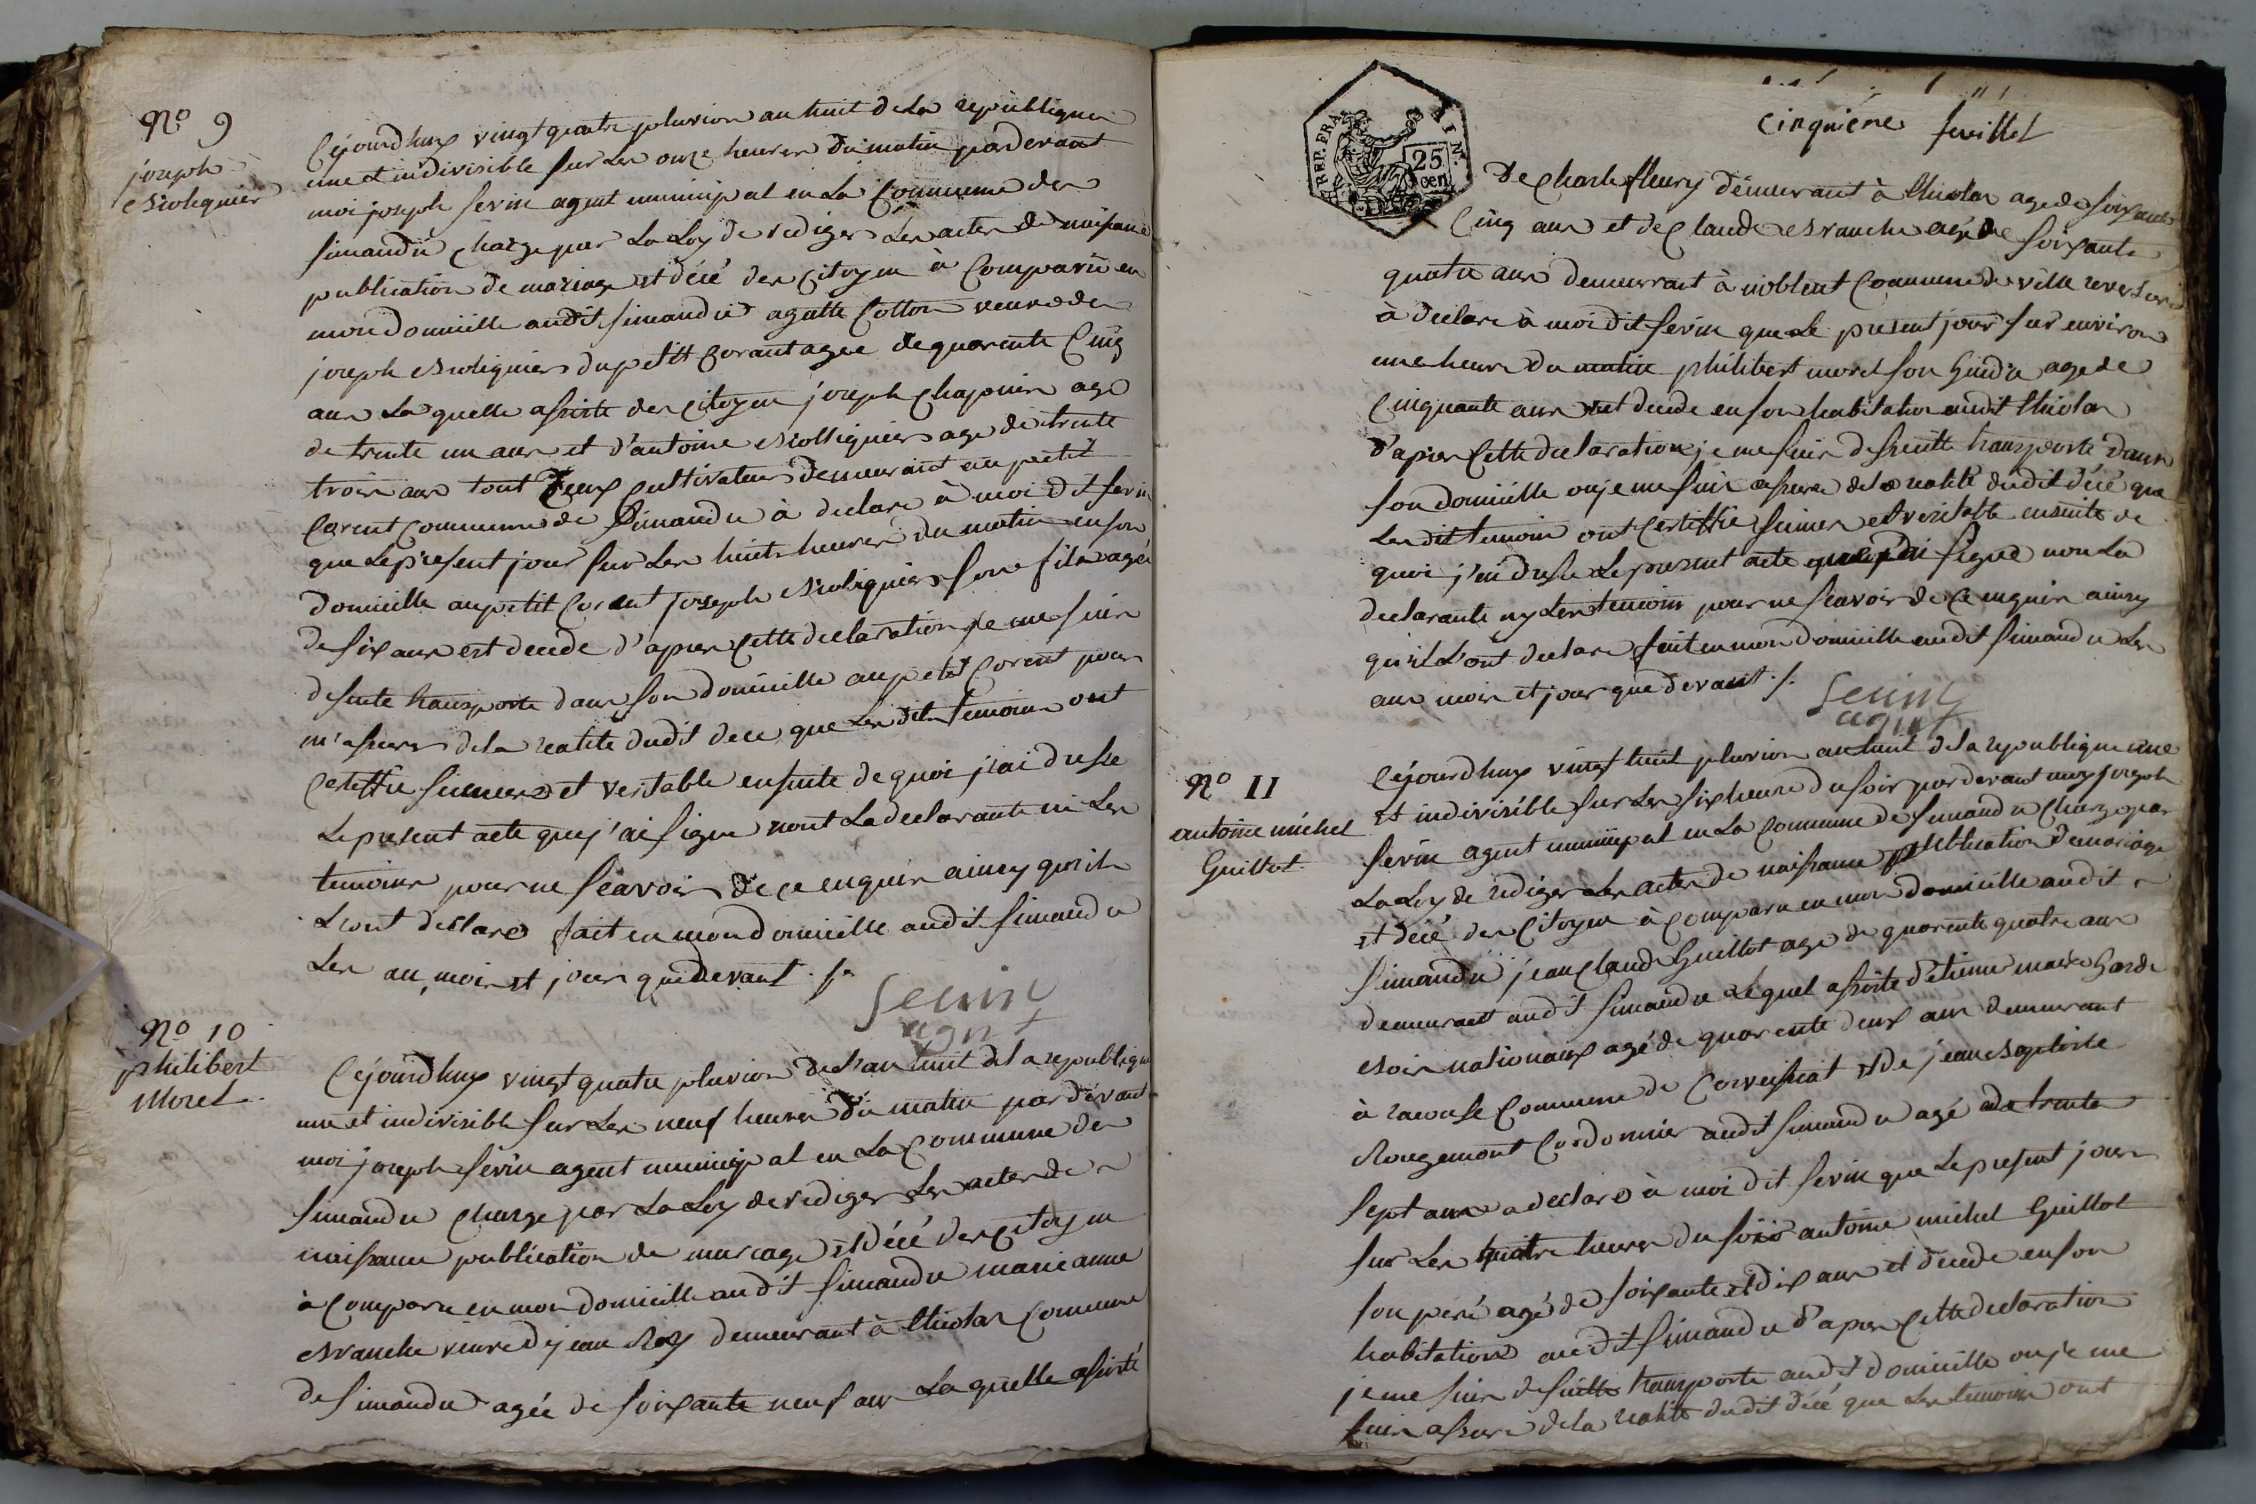 N° 9
joseph
Broliquier
Cejourdhuy vingt quatre pluvios an huit de La republique
une et indivisible sur Les onze heures du matin pardevant
moi joseph sevin agent municipal en La Commune de
simandre chargé par La Loy de rediger Les actes de naissance
publication de mariage et décé des Citoyen à Comparu en
mon domicille audit simandre agatte Cotton veuve de
joseph Broliquier du petit Corant agée de quarente Cinq
ans La quelle assisté des Citoyen joseph Chapuis age
de trente un ans et d'antoine Broliquier age de trente
trois ans tout deux Cultivateur demeurant au petit
Corent Commune de Simandre à declare à moi dit sevin
que Le present jour sur Les huit heures du matin en son
domicille au petit Corent joseph Broliquier son fils agée
de six ans est decede d'apres Cette declaration je me suis
desuite transporte dans son domicille au petit Corent pour
m'assurer de la realite dudit dece que Les dits temoins ont
Certiffie sincere et veritable ensuite de quoi j'ai dresse
Le present acte que j'ai signe nont La declarante ni Les
temoins pour ne scavoir de ce enquis aincy quils
L'ont declare fait en mon domicille audit simandre
Les an, mois et jours que devant ./.
Sevin
agent
N° 10
philibert
Morel
Cejourdhuy vingt quatre pluvios de L'an huit de la republique
une et indivisible sur Les neuf heures du matin pardevant
moi joseph sevin agent municipal en La Commune de
simandre Charge par La Loy de rediger Les actes de
naissance publication de mariage et décé des Citoyen
à Comparu en mon domicille audit simandre marie anne
Branche veuve de jean Roy demeurant à thiolas Commune
de simandre agée de soixante neuf ans La quelle assisté
REP. FRA.
TIM.
25
cen
Cinquiéme feuillet
De Charle fleury demeurant à thiolas age de soixante
Cinq ans et de Claude Branche agé de soixante
quatre ans demeurant à noblent Commune de ville reversure
à declare à moi dit sevin que Le present jour sur environ
une heure du matin philibert morel son Gendre age de
Cinquante ans est decede en son habitation audit thiolas
d'apres Cette declaration je me suis desuitte transporte dans
son domicille ou je me suis assure de la realité dudit décé que
Les dit temoin ont Certiffie sincer et veritable ensuite de
quoi j'ai dresse Le present acte que j'ai signe non La
declarante ny Les temoins pour ne scavoir de Ce enquis aincy
quil L'ont declare fait en mon domicille audit simandre Les
ans mois et jour que devant ./.
Sevin
agent
N° 11
antoine michel
Guillot
Cejourdhuy vingt huit pluvios an huit de la republique une
et indivisible sur Les six heure du soir pardevant moy joseph
sevin agent municipal en La Commune de simandre Charge par
La Loy de rediger Les actes de naissance publication de mariage
et décé des Citoyen à Comparu en mon domicille audit
simandre jean Claude Guillot age de quarente quatre ans
demeurant audit simandre Lequel assisté d'etienne maire Garde
Bois nationaux agé de quarente deux ans demeurant
à racouse Commune de Corveissiat et de jean Baptiste
Rougemont Cordonnier audit simandre agé de trente
sept ans a declare à moi dit sevin que Le present jour
sur Les quatre heures du soir antoine michel Guillot
son peré agé de soixante et dix ans et decede en son
habitation audit simandre d'apres Cette declaration
je me suis desuitte transporte audit domicille ou je me
suis assure de la realité dudit décé que Les temoins ont